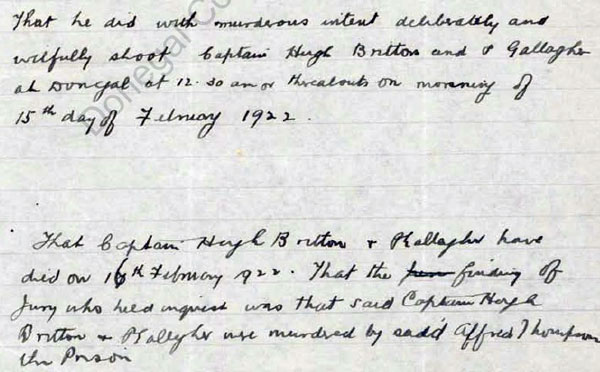 That he did with murderous intent deliberately and
wilfully shoot Captain Hugh Britton and P Gallagher
at Donegal at 12.30 am or thereabouts on morning of
15th day of February 1922.
That Captain Hugh Britton & P Gallagher have
died on 16th February 1922. That the finding of
Jury who held inquest was that said Captain Hugh
Britton & P Gallagher were murdered by said Alfred Thompson
the Prison